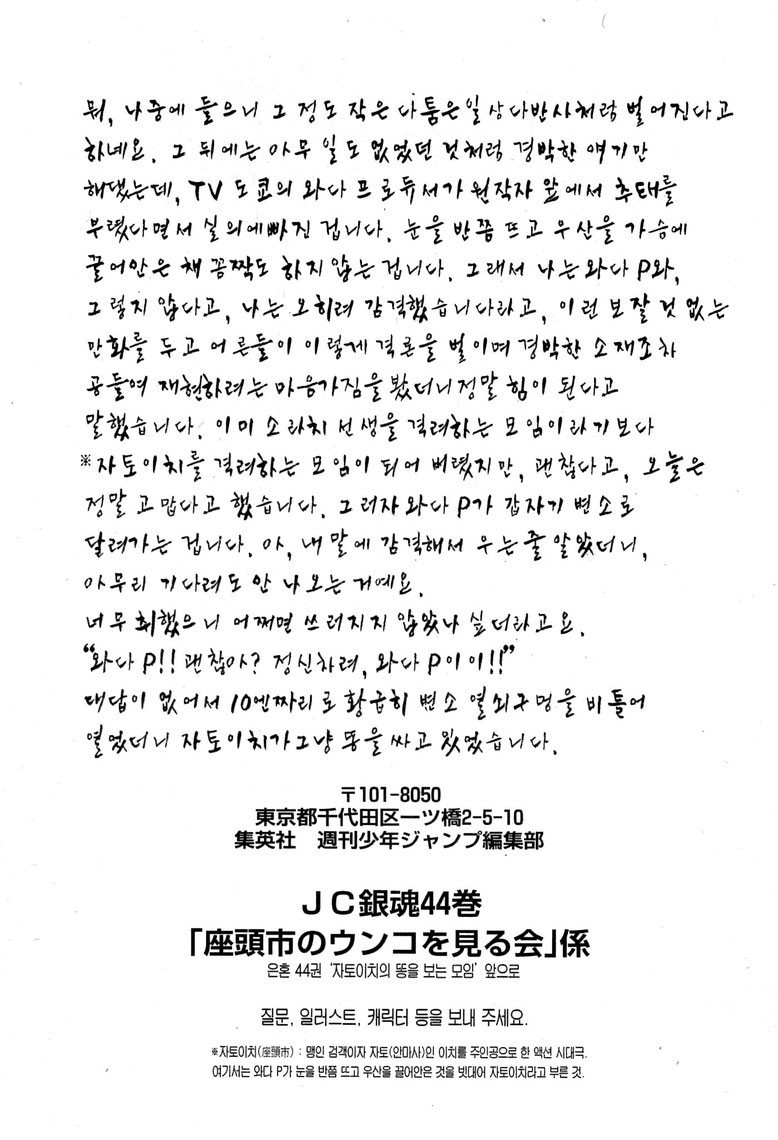 뭐, 나중에 들으니 그 정도 작은 다툼은 일상다반사처럼 벌어진다고
하네요. 그 뒤에는 아무 일도 없었던 것처럼 경박한 얘기만
해댔는데, TV 도쿄의 와다 프로듀서가 원작자 앞에서 추태를
부렸다면서 실의에 빠진 겁니다. 눈을 반쯤 뜨고 우산을 가슴에
끌어안은 채 꼼짝도 하지 않는 겁니다. 그래서 나는 와다 P와,
그렇지 않다고, 나는 오히려 감격했습니다라고, 이런 보잘 것 없는
만화를 두고 어른들이 이렇게 격론을 벌이며 경박한 소재조차
공들여 재현하려는 마음가짐을 봤더니 정말 힘이 된다고
말했습니다. 이미 소라치 선생을 격려하는 모임이라기보다
※자토이치를 격려하는 모임이 되어 버렸지만, 괜찮다고, 오늘은
정말 고맙다고 했습니다. 그러자 와다 P가 갑자기 변소로
달려가는 겁니다. 아, 내 말에 감격해서 우는 줄 알았더니,
아무리 기다려도 안 나오는 거예요.
너무 취했으니 어쩌면 쓰러지지 않았나 싶더라고요.
“와다 P!! 괜찮아? 정신차려, 와다 P이이!!”
대답이 없어서 10엔짜리로 황급히 변소 열쇠구멍을 비틀어
열었더니 자토이치가 그냥 똥을 싸고 있었습니다.
〒101-8050
東京都千代田区一ツ橋2-5-10
集英社 週刊少年ジャンプ編集部
JC銀魂44巻
「座頭市のウンコを見る会」係
은혼 44권 '자토이치의 똥을 보는 모임' 앞으로
질문, 일러스트, 캐릭터 등을 보내 주세요.
※자토이치(座頭市) : 맹인 검객이자 자토(안마사)인 이치를 주인공으로 한 액션 시대극.
여기서는 와다 P가 눈을 반쯤 뜨고 우산을 끌어안은 것을 빗대어 자토이치라고 부른 것.